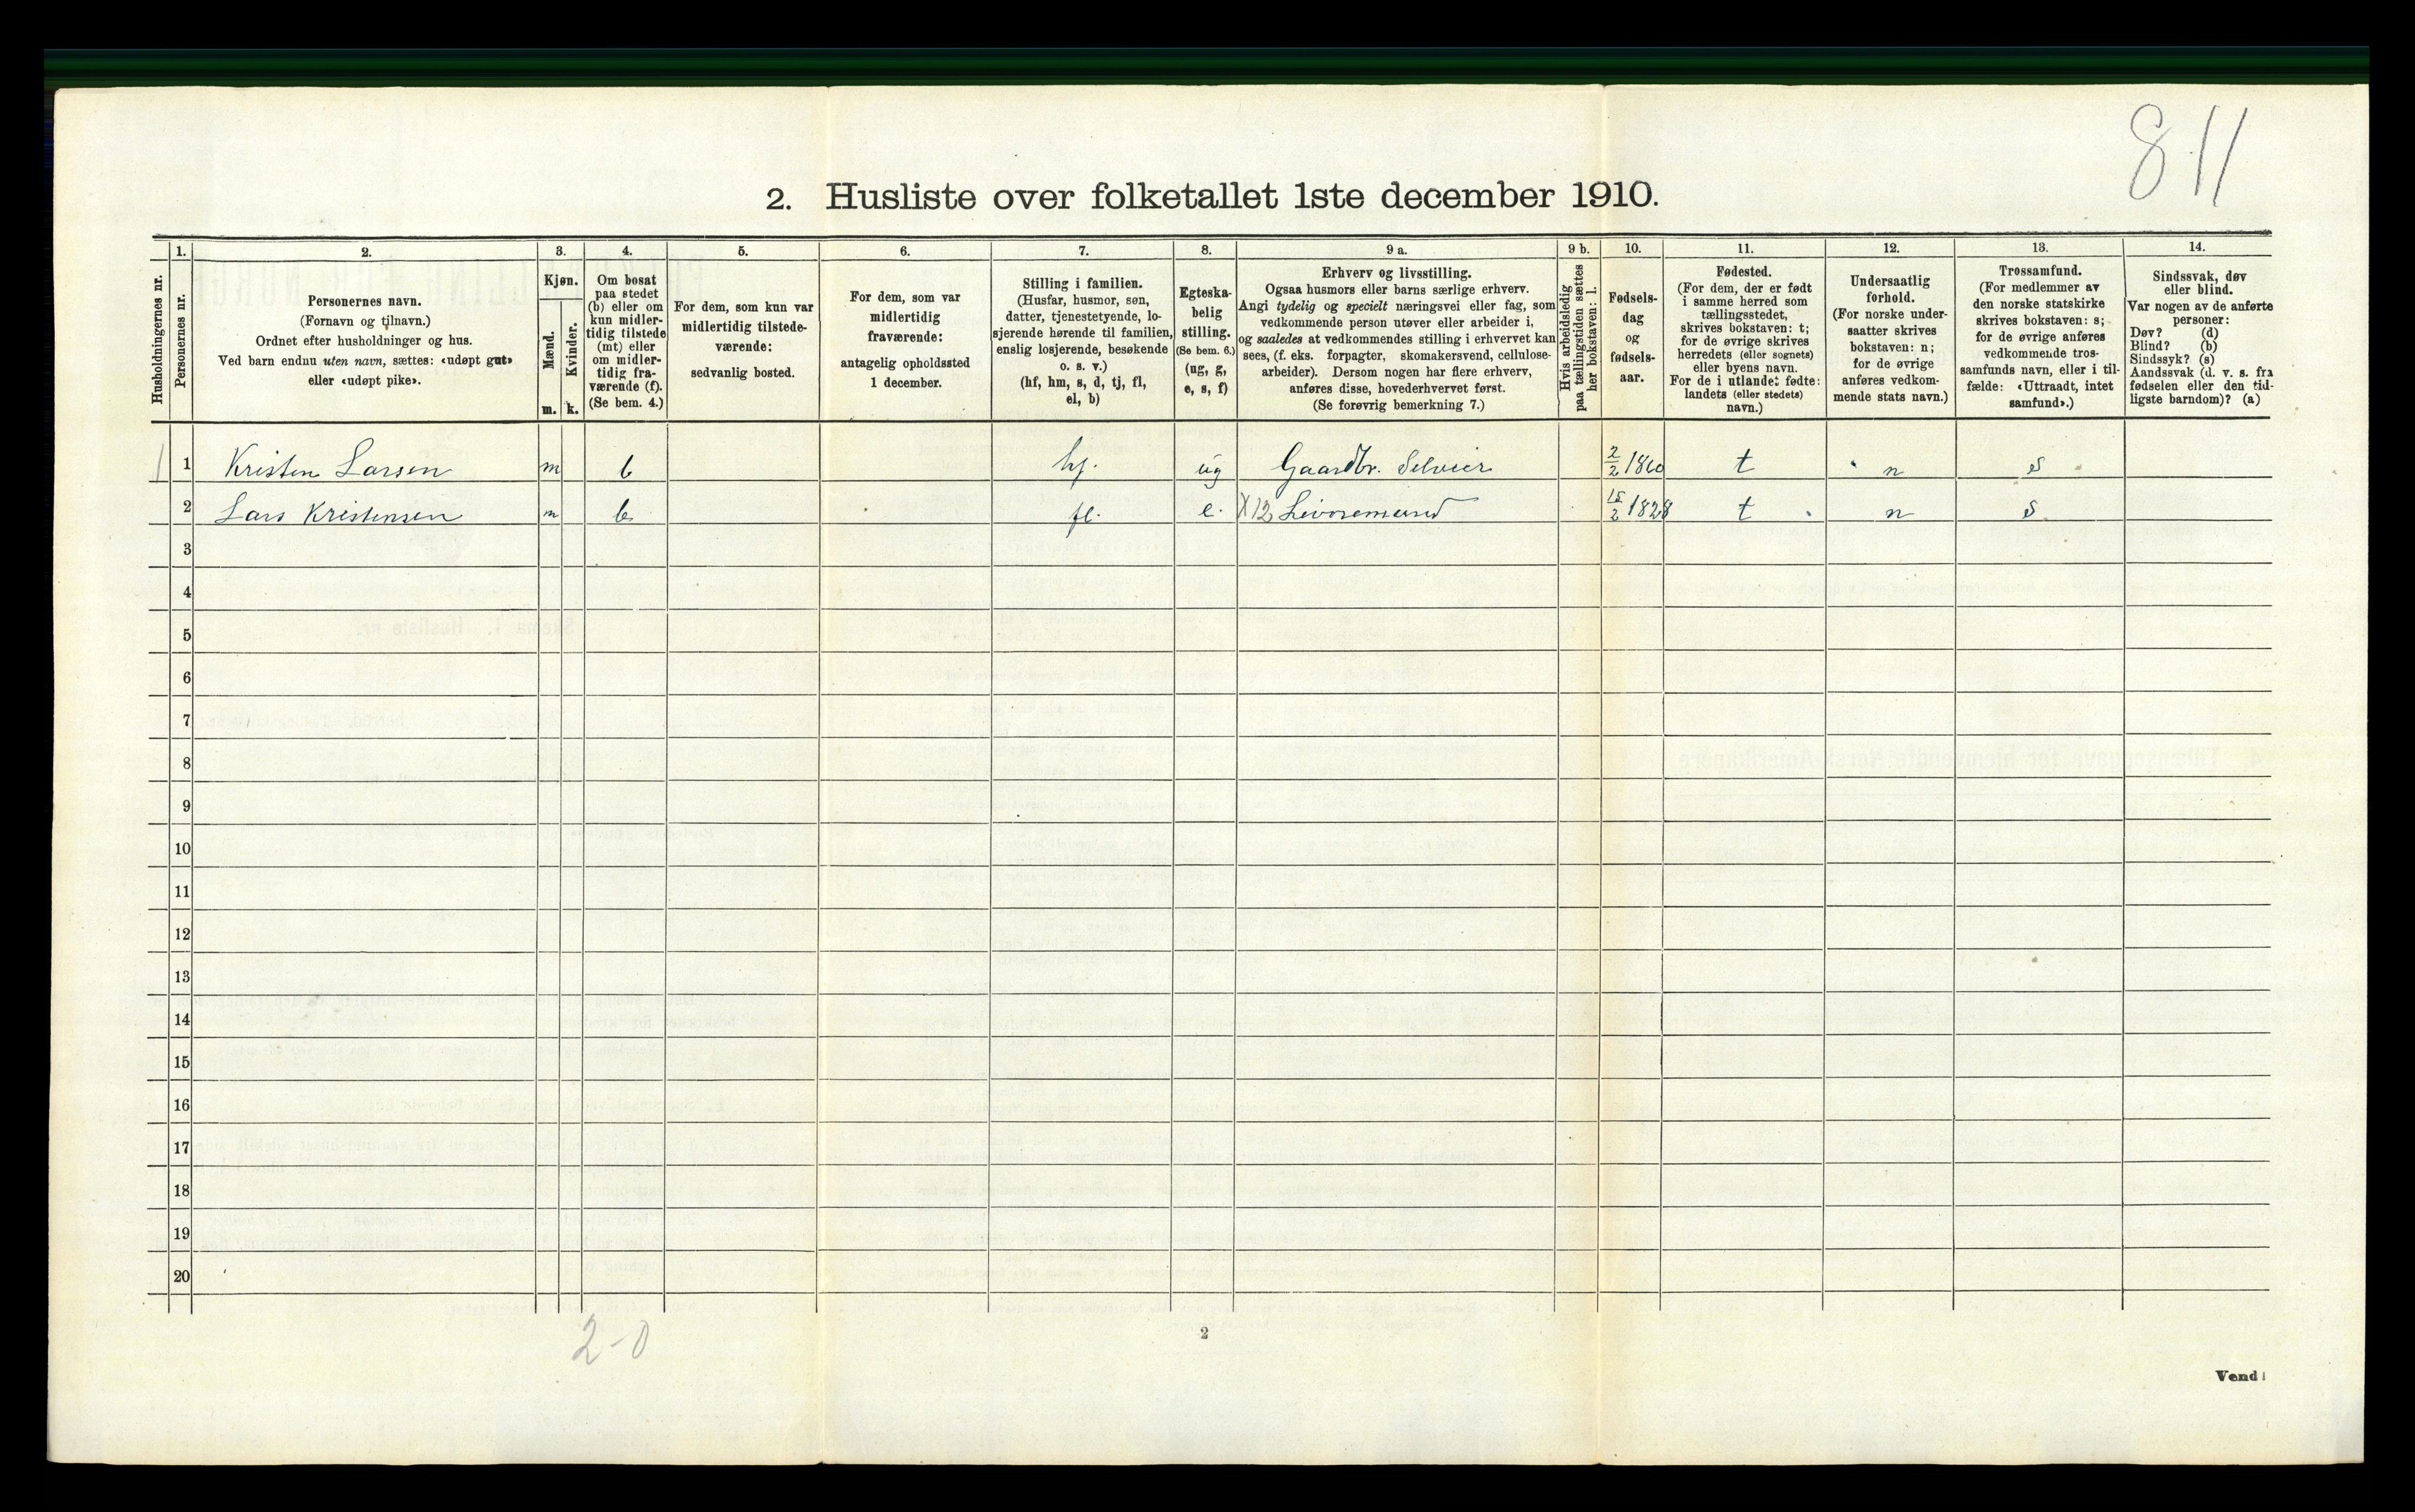 811
2. Husliste over folketallet 1ste december 1910.
Husholdningernes nr.
1.
Personernes nr.
2.
Personernes navn.
(Fornavn og tilnavn.)
Ordnet efter husholdninger og hus.
Ved barn endnu uten navn, sættes: «udøpt gut»
eller «udøpt pike».
3.
Kjøn.
Mænd.
Kvinder.
m. k.
4.
Om bosat
paa stedet
(b) eller om
kun midler-
tidig tilstede
(mt) eller
om midler-
tidig fra-
værende (f).
(Se bem. 4.)
5.
For dem, som kun var
midlertidig tilstede-
værende:
sedvanlig bosted.
6.
For dem, som var
midlertidig
fraværende:
antagelig opholdssted
1 december.
7.
Stilling i familien.
(Husfar, husmor, søn,
datter, tjenestetyende, lo-
sjerende hørende til familien,
enslig losjerende, besøkende
o. s. v.)
(hf, hm, s, d, tj, fl,
el, b)
8.
Egteska-
belig
stilling.
(Se bem. 6.)
(ug, g,
e, s, f)
9 a.
Erhverv og livsstilling.
Ogsaa husmors eller barns særlige erhverv.
Angi tydelig og specielt næringsvei eller fag, som
vedkommende person utøver eller arbeider i,
og saaledes at vedkommendes stilling i erhvervet kan
sees, (f. eks. forpagter, skomakersvend, cellulose-
arbeider). Dersom nogen har flere erhverv,
anføres disse, hovederhvervet først.
(Se forøvrig bemerkning 7.)
9 b.
Hvis arbeidsledig
paa tællingstiden sættes
her bokstaven: l.
10.
Fødsels-
dag
og
fødsels-
aar.
11.
Fødested.
(For dem, der er født
i samme herred som
tællingsstedet,
skrives bokstaven: t;
for de øvrige skrives
herredets (eller sognets)
eller byens navn.
For de i utlandet fødte:
landets (eller stedets)
navn.)
12.
Undersaatlig
forhold.
(For norske under-
saatter skrives
bokstaven: n;
for de øvrige
anføres vedkom-
mende stats navn.)
13.
Trossamfund.
(For medlemmer av
den norske statskirke
skrives bokstaven: s;
for de øvrige anføres
vedkommende tros-
samfunds navn, eller i til-
fælde: «Uttraadt, intet
samfund».)
14.
Sindssvak, døv
eller blind.
Var nogen av de anførte
personer:
Døv? (d)
Blind? (b)
Sindssyk? (s)
Aandssvak (d. v. s. fra
fødselen eller den tid-
ligste barndom)? (a)
1 1 Kristen Larsen m b hf. ug Gaardbr. Selveier 2/2 1860 t n s
2 Lars Kristensen m b fl. e. X12 Livøremand 15/2 1828 t n s
3
4
5
6
7
8
9
10
11
12
13
14
15
16
17
18
19
20
2-0
2
Vend!